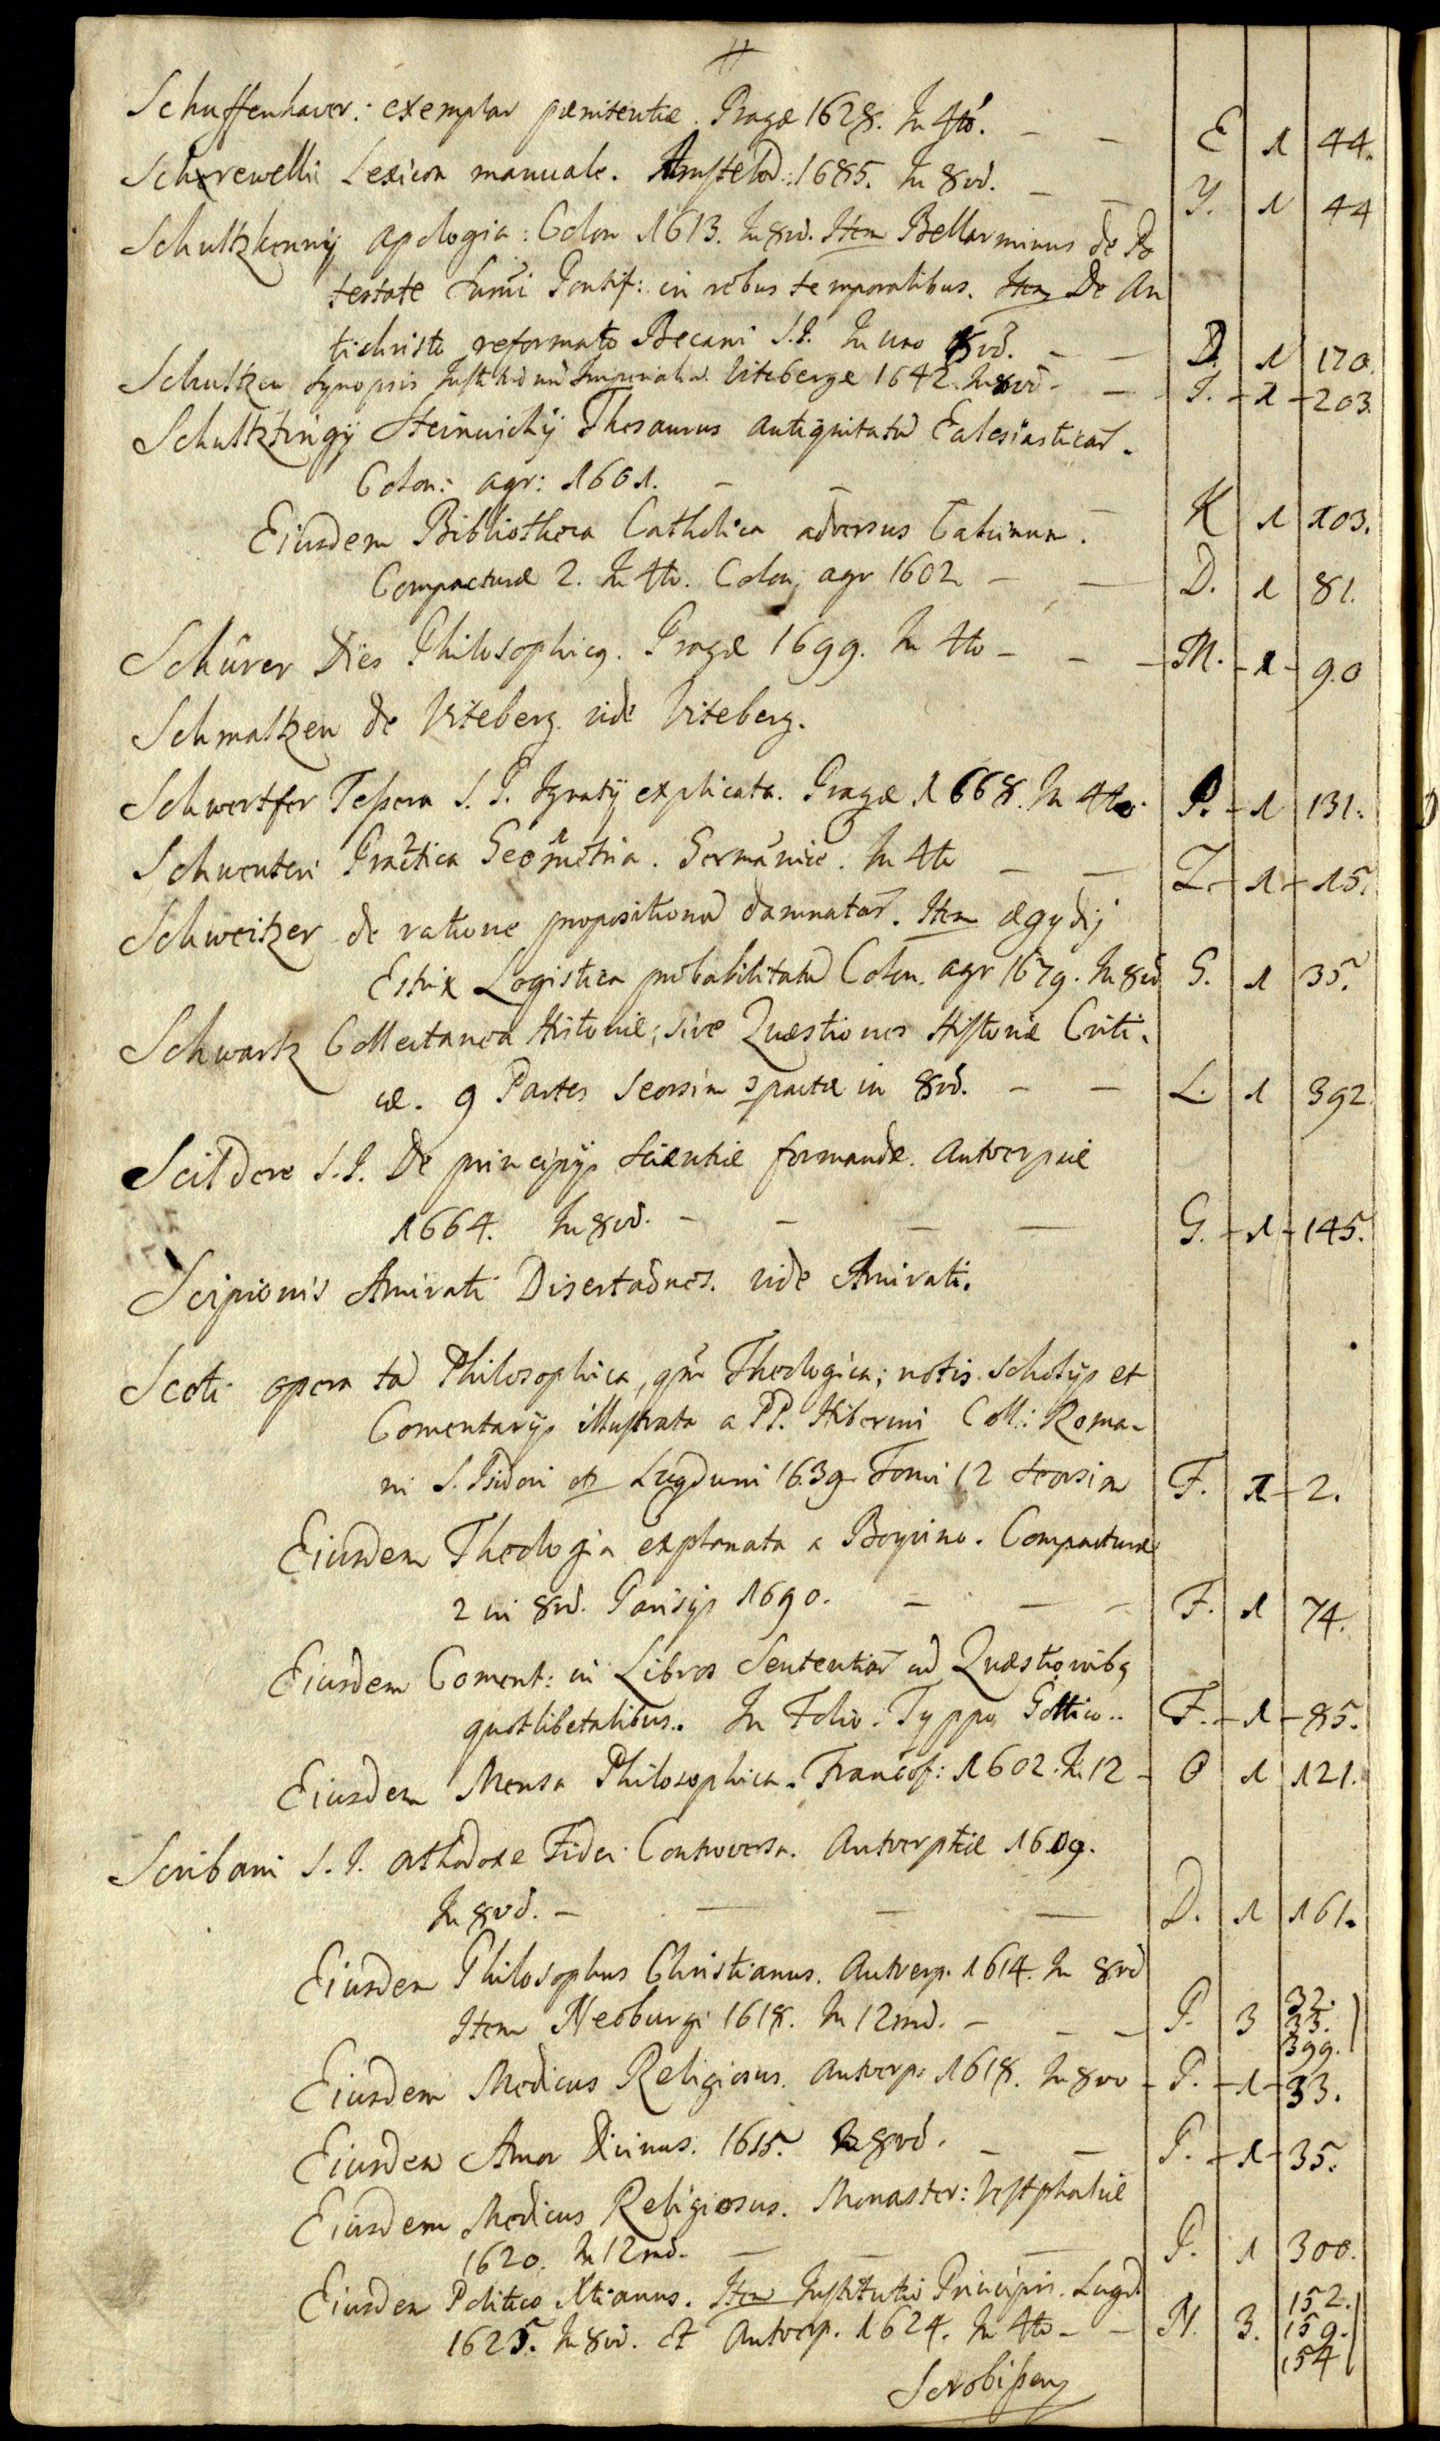 Schuffenhaver: exemplar pænitentiæ. Pragæ 1628. In 4to. E 1 44.
Schrewellii Lexicon manuale. Amstelod: 1685. In 8vo. Y. 1 44
Schultzkennij apologia: Colon 1613. In 8vo. Item Bellarminus de Po
testate sumi Pontif: in rebus temporalibus. Item De An
tichristo reformato Becani S.J. In uno 8vo. D. 1 170.
Schultzen Synopsis Imperialium Vitebergæ 1642. In 8vo. J. 1 203.
Schultztingij Steinwichij Thesaurus antiquitatu Eclesiasticar.
Colon: agr: 1601. K 1 103.
Eiusdem Bibliotheca Catholica adversus Calvinum.
Compacturæ 2. In 4to. Colon: agr 1602 D. 1 81.
Schürer Dies Philosophicg. Pragæ 1699. In 4to M. 1 90
Schmaltzen de Viteberg. vide Viteberg.
Schwertfer Tessera S. P. Ignatij explicata. Pragæ 1668. In 4to. P. 1 131.
Schwenteri Practica Geometria. Germanice. In 4to Z. 1 15.
Schweitzer de ratione propositionu damnatar. Item ægydij
Estrix Logistica probabilitatu Colon. agr 1679. In 8vo G. 1 35.
Schwartz Collectanea Historiæ; sive Quæstiones Historiæ Criti.
cæ. 9 Partes Seorsim compactæ in 8vo. L. 1 392
Scildere S.J. De principijs Scientiæ formandæ. Antverpiæ
1664. In 8vo. G. 1 145.
Scipionis Amirati Disertaones. vide Amirati.
Scoti opera ta Philosophica, qm Theologica; notis Scholijs et
Comentarijs illustrata a PP. Hiberni Coll: Roma-
ni S. Isidori Lugduni 1639 Tomi 12 seorsim F. 1 2.
Eiusdem Theologia explanata a Boyvino. Compacturæ
2 in 8vo. Parisijs 1690. F. 1 74.
Eiusdem Coment: in Libros Sententiar cu Quæstionibq
quotlibetalibus. In Folio. Typpo Gottico. F. 1 85.
Eiusdem Mensa Philosophica. Francof: 1602. In 12 O 1 121.
Scribani S. J. orthodoxæ Fidei Controversa. Antverpiæ 1609.
In 8vo. D. 1 161.
Eiusdem Philosophus Christianus. Antverp. 1614. In 8vo
Item Neoburgi 1618. In 12mo. P. 3 32. 33. 399.
Eiusdem Medicus Religiosus. Antverp. 1618. In 8vo P. 1 33.
Eiusdem Amor Divinus. 1615. In 8vo. P. 1 35.
Eiusdem Medicus Religiosus. Monaster: Vestphaliæ
1620. In 12mo. P. 1 300.
Eiusdem Politico Xtianus. Item Institutio Principis. Lugd.
1625. In 8vo. et Antverp. 1624. In 4to N. 3. 152. 159. 154
Scrobissen